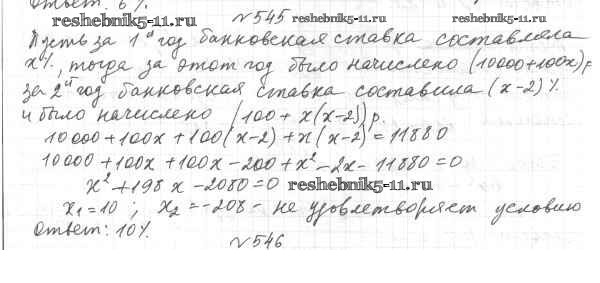 Ответ: 6%.
№545
reshebnik5-11.ru reshebnik5-11.ru reshebnik5-11.ru
Пусть за 1й год банковская ставка составляла
x%, тогда за этот год было начислено (10000+100x)р
за 2й год банковская ставка составила (x-2)%
и было начислено (100+x(x-2))р.
10000+100x+100(x-2)+x(x-2)=11880
10000+100x+100x-200+x²-2x-11880=0
x²+198x-2080=0 reshebnik5-11.ru
x₁=10 ; x₂=-208 - не удовлетворяет условию
Ответ: 10%.
№546